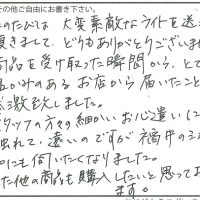 その他ご自由にお書き下さい。
このたびは 大変素敵なライトを送
頂きまして、どうもありがとうございま
商品を受け取った瞬間から、とて
温かみのあるお店から届いたこと
感激致しました。
スタッフの方々の細かいお心遣いに
触れて、遠いのですが福井の
にも伺いたくなりました。
た他の商品も購入したいと思ってお
ます。